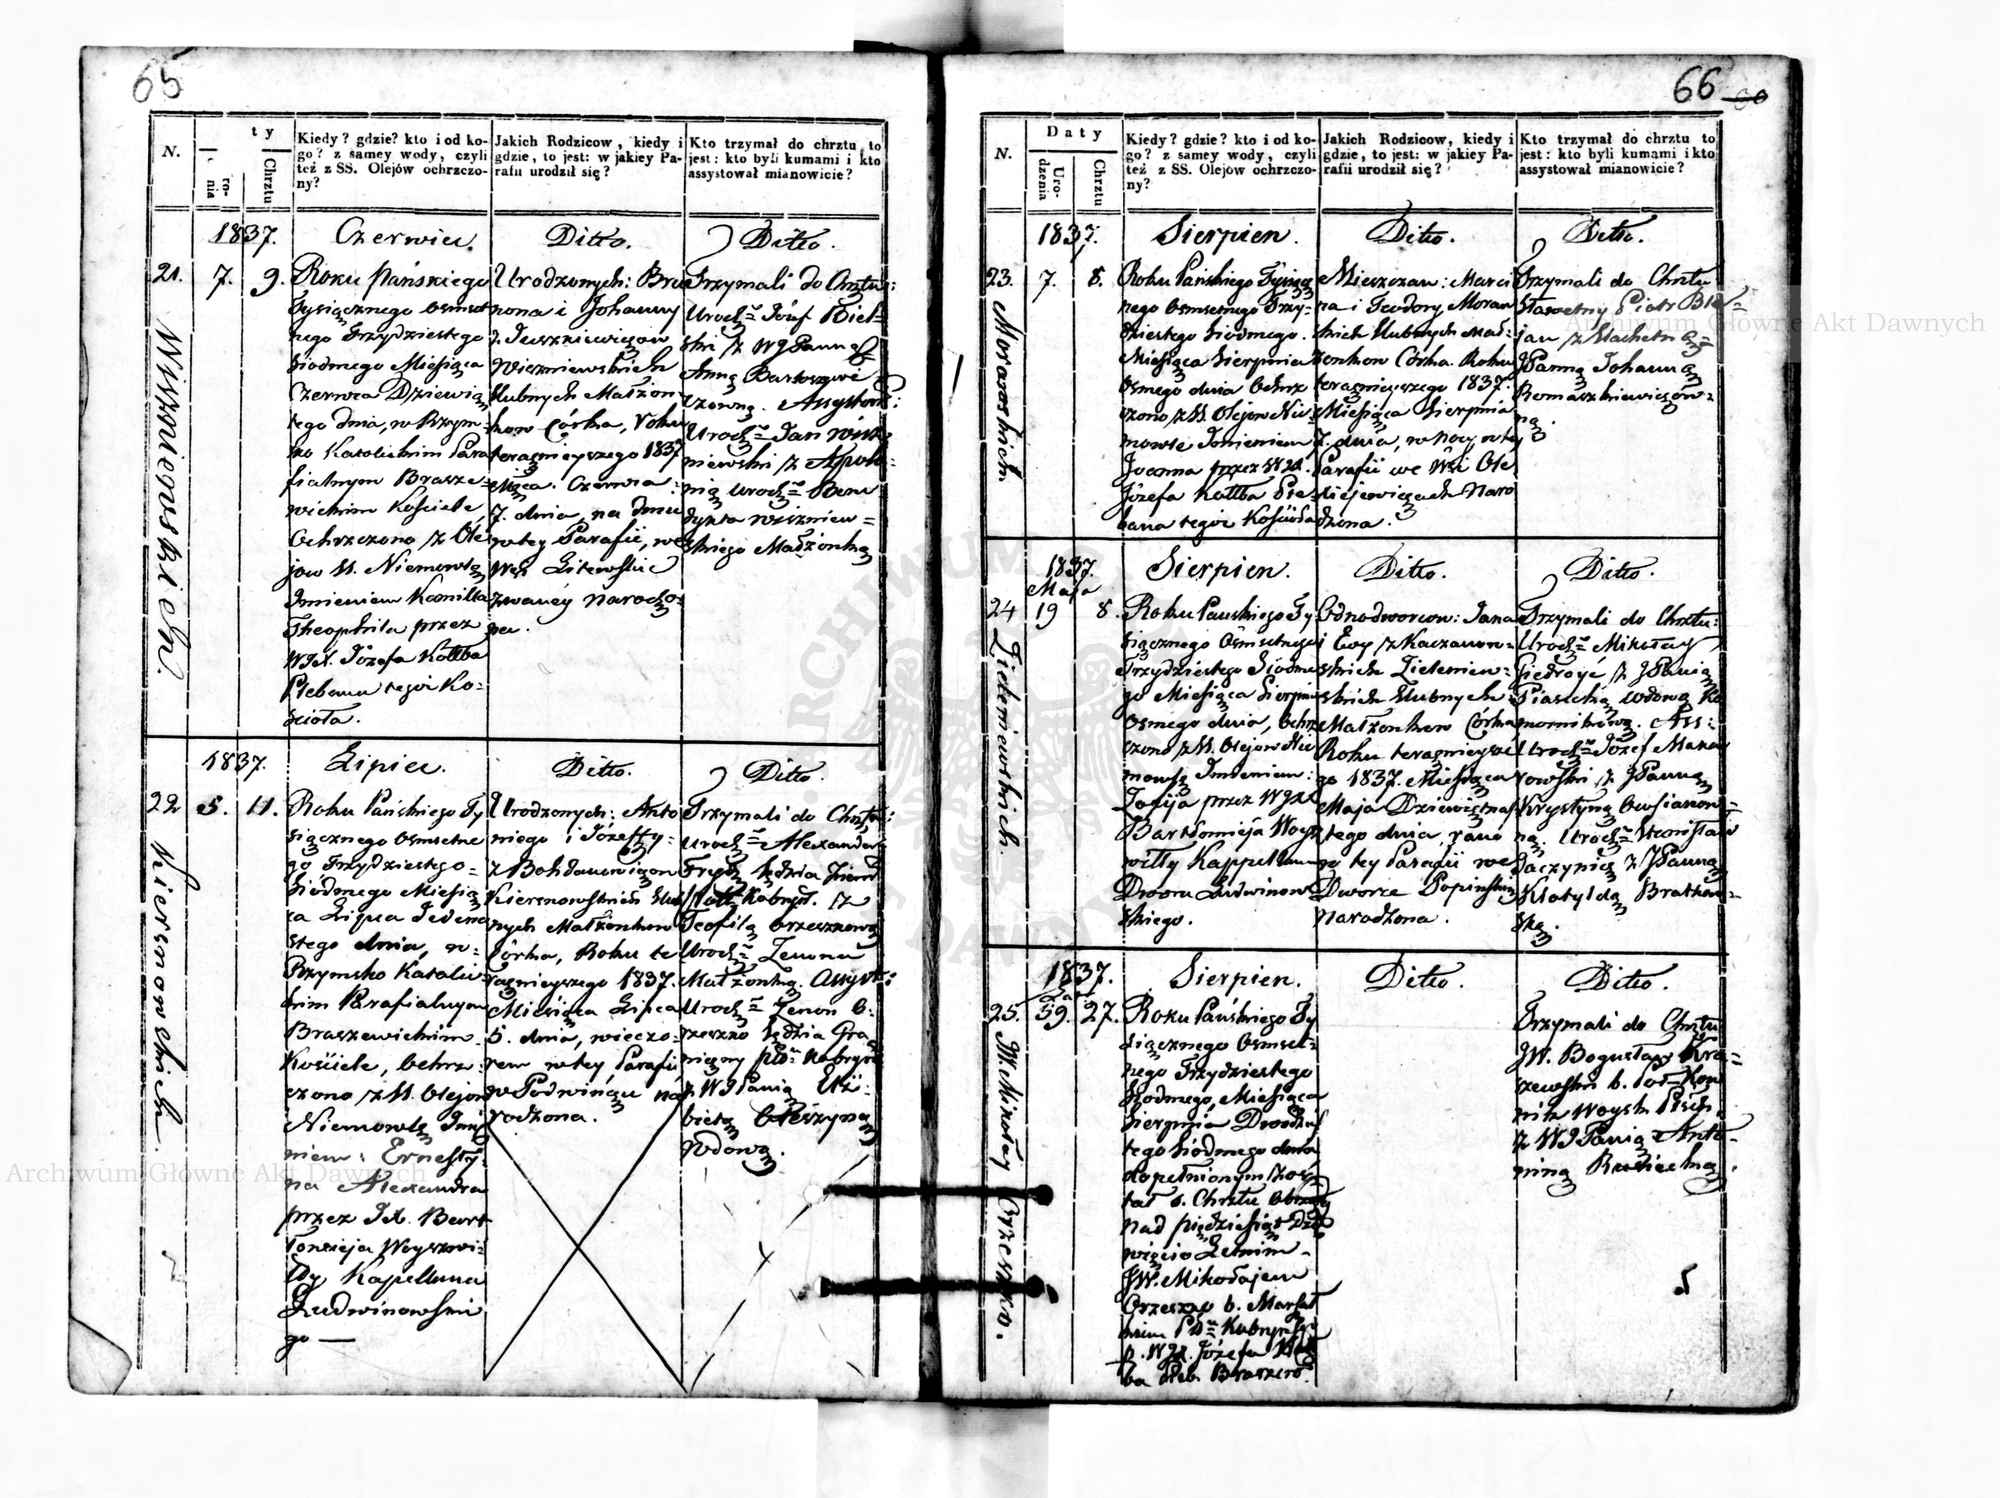 65
N.
ty
ro-
nia
Chrztu
Kiedy? gdzie? kto i od ko-
go? z samey wody, czyli
też z SS. Olejów ochrzczo-
ny?
Jakich Rodzicow, kiedy i
gdzie, to jest: w jakiey Pa-
rafii urodził się?
Kto trzymał do chrztu, to
jest: kto byli kumami i kto
assystował mianowicie?
1837.
Czerwiec.
Ditto.
Ditto.
21.
7.
9.
Roku Pańskiego
Tysiącznego Osmset
nego Trzydziestego
Siodmego Miesiąca
Czerwca Dziewią
tego dnia, w Rzym
sko Katolickim Para
fialnym Brasze-
wickim Kościele
Ochrzczono z Ole
jow SS. Niemowlę
Imieniem Kamilla
Theophila przez
WJX. Józefa Kottba
Plebana tegoż Ko-
ścioła.
Urodzonych: Bru
nona i Johanny
z Juszkiewiczow
Wiszniewskich
Slubnych Małżon
kow Córka, Roku
teraznieyszego 1837
Mięca. Czerwca
7. dnia, na dniu
w tey Parafii, we
Wsi Litewskie
zwaney narodzo-
na.
Trzymali do Chrztu:
Urodz: Józef Biel-
ski z WJPanną
Anną Bartoszewi
czowną. Assystow:
Urodz: Jan Wisz-
niewski z Apolo-
nią Urodz: Bene
dykta Wiszniew=
skiego Małżonką
Wiszniewskich.
1837.
Lipiec.
Ditto.
Ditto.
22
5.
11.
Roku Pańskiego Ty
siącznego Osmsetne
go Trzydziestego-
Siódmego Miesią
ca Lipca Jedena
stego dnia, w-
Rzymsko Katolic
kim Parafialnym
Braszewickim
Kościele, Ochrz-
czono z SS. Olejow
Niemowlę Imie
niem: Ernesty-
na Alexandra
przez JX. Bart
łomieja Woyszwi-
łły Kapellana
Ludwinowski
go —
Urodzonych: Anto
niego i Józeffy-
z Bohdanowiczow
Kiersnowskich Slub
nych Małżonkow
Córka, Roku te
raznieyszego 1837.
Miesiąca Lipca
5. dnia, wieczo-
rem w tey Parafii
w Podwincu na
rodzona.
Trzymali do Chrztu:
Urodz: Alexander
Sędzia Ziem
Kobryń. z
Teofilą Orzeszkową
Urodz: Zenona
Małżonką. Assyst:
Urodz: Zenon O-
rzeszko Sędzia Gra
niczny Ptu Kobryń
z WJPanią Elż-
bietą
Wdową.
Kiersnowskich.
66
N.
Daty
Uro-
dzenia
Chrztu
Kiedy? gdzie? kto i od ko-
go? z samey wody, czyli
też z SS. Olejów ochrzczo-
ny?
Jakich Rodzicow, kiedy i
gdzie, to jest: w jakiey Pa-
rafii urodził się?
Kto trzymał do chrztu to
jest: kto byli kumami i kto
assystował mianowicie?
1837.
Sierpien.
Ditto.
Ditto.
23.
7.
8.
Roku Pańskiego Tysiącz
nego Osmsetnego Trzy-
dziestego Siodmego.
Miesiąca Sierpnia
Osmego dnia Ochrz
czono z SS. Olejow Nie
mowle Imieniem
Joanna przez WJX.
Józefa Kottba Ple-
bana tegoż Kościoła
Mieszczan: Marci
na i Teodory Moraw
skich Slubnych Mał-
żonkow Córka. Roku
teraznieyszego 1837.
Miesiąca Sierpnia
7. dnia, w nocy, w tey
Parafii we Wsi Ole
kiejewiczach Naro
dzona.
Trzymali do Chrztu
Sławetny Piotr
jan z Szlachetną
JPanną Johanną
Romaszkiewiczow-
ną.
Morawskich.
1837.
Maja
Sierpien.
Ditto.
Ditto.
24
19
8.
Roku Pańskiego Ty
siącznego Osmsetnego
Trzydziestego Siodme
go Miesiąca Sierpnia
Osmego dnia, Ochrz
czono z SS. Olejow Nie
mowlę Imieniem:
Zofija przez WJX
Bartłomieja Woysz
wiłły Kappellana
Dworu Ludwinow
skiego.
Odnodworcow: Jana
i Ewy z Kaczanow-
skich Zieleniew-
skich Slubnych
Małżonkow Córka
Roku teraznieysze
go 1837. Miesiąca
Maja Dziewiętnas
tego dnia rano
w tey Parafii we
Dworze Popinskim
narodzona.
Trzymali do Chrztu:
Urodz: Mikołay
Giedroyć, z JPanią
Piasecką Wdową Ko
mornikową. Ass:
Urodz: Józef Maka
rowski z JPanną
Krystyną Owsianow-
ną. Urodz: Stanisław
z JPanną
Klotyldą Bratkow-
ską
Zieleniewskich.
1837.
Sierpien.
Ditto.
Ditto.
25.
59.
27.
Roku Pańskiego Ty
siącznego Osmset-
nego Trzydziestego
Siodmego, Miesiąca
Sierpnia Dwódzies
tego Siódmego dnia
dopełnionym zos-
tał s. Chrztu Obrzęd
nad pięćdziesiąt Dzie
więcio Letnim-
JW. Mikołajem
Orzeszko b. Marszał
kiem Ptu Kobryńskie
p. WJX. Józefa Kott
ba Pleb. Braszew.
Trzymali do Chrztu
JW. Bogusław Kra-
szewski b. Poł-Kow
nik Woysk Polsk.
z WJPanią Anto-
niną Rusiecką.
W. Mikołay Orzeszko.
Archiwum Główne Akt Dawnych
Archiwum Główne Akt Dawnych